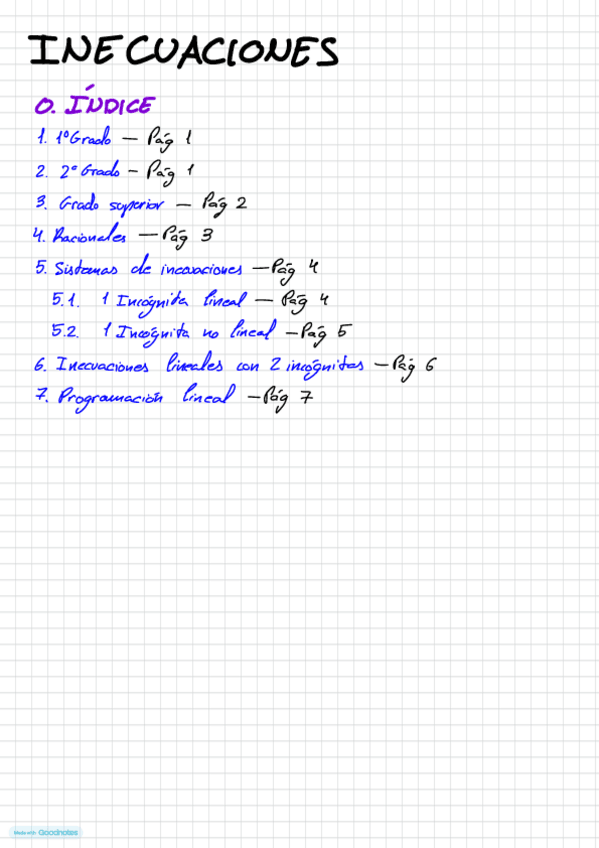 INECUACIONES
0. ÍNDICE
1. 1º Grado — Pág 1
2. 2º Grado — Pág 1
3. Grado superior — Pág 2
4. Racionales — Pág 3
5. Sistemas de inecuaciones — Pág 4
5.1. 1 Incógnita lineal — Pág 4
5.2. 1 Incógnita no lineal — Pág 5
6. Inecuaciones lineales con 2 incógnitas — Pág 6
7. Programación lineal — Pág 7
Made with Goodnotes